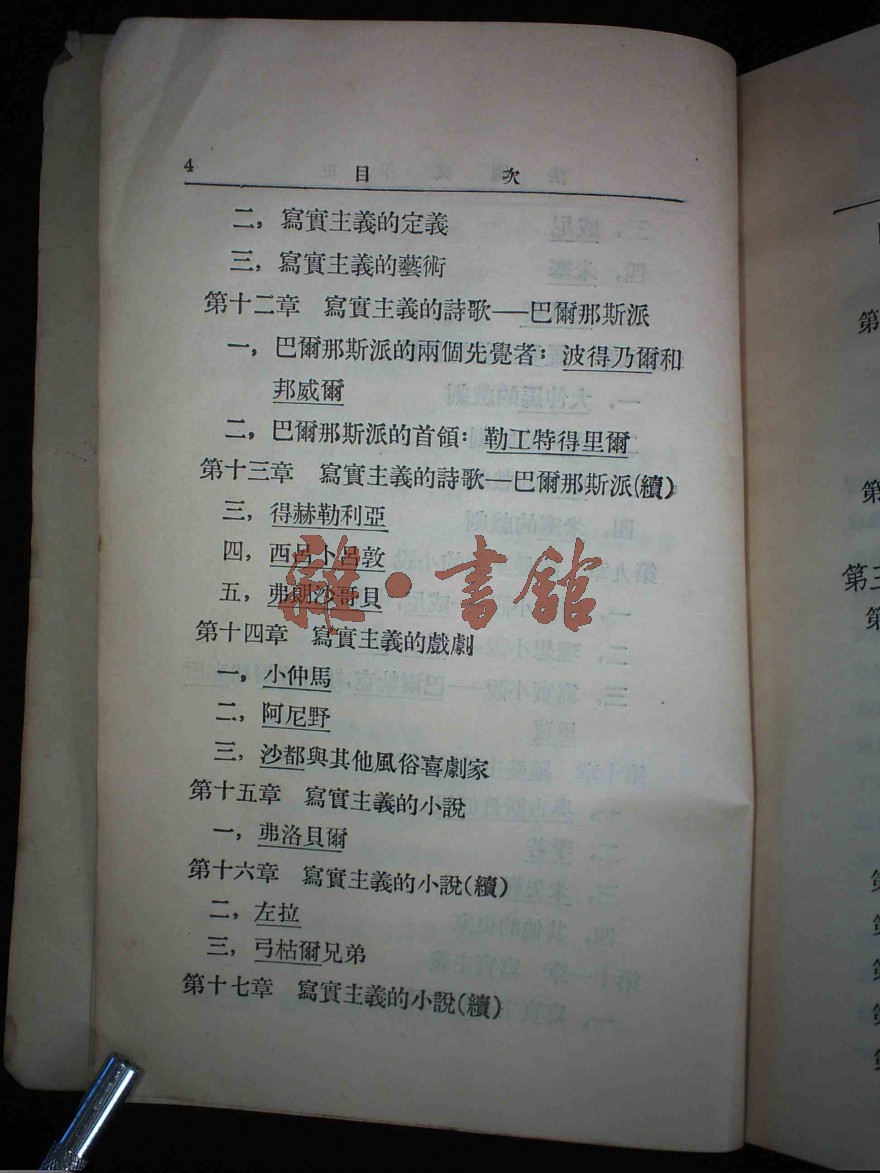 4
目 次
二，寫實主義的定義
三，寫實主義的藝術
第十二章 寫實主義的詩歌——巴爾那斯派
一，巴爾那斯派的兩個先覺者：波得乃爾和
邦威爾
二，巴爾那斯派的首領：勒工特得里爾
第十三章 寫實主義的詩歌—巴爾那斯派(續)
三，得赫勒利亞
四，西呂卜呂敦
五，弗朗沙哥貝
雜·書館
第十四章 寫實主義的戲劇
一，小仲馬
二，阿尼野
三，沙都與其他風俗喜劇家
第十五章 寫實主義的小說
一，弗洛貝爾
第十六章 寫實主義的小說(續)
二，左拉
三，弓枯爾兄弟
第十七章 寫實主義的小說(續)
第
第
第三
第
第
第
第
第